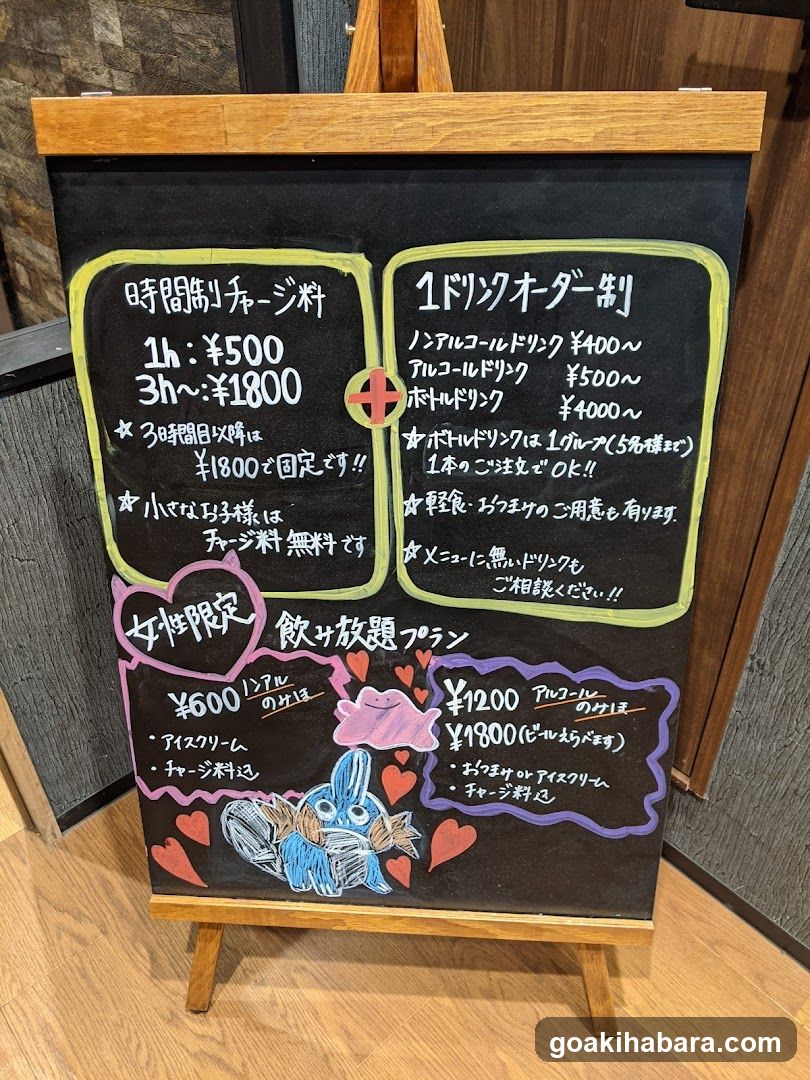 時間制チャージ料
1h:¥500
3h〜:¥1800
☆3時間目以降は
¥1800で固定です!!
☆小さなお子様は
チャージ料無料です
+
1ドリンクオーダー制
ノンアルコールドリンク ¥400〜
アルコールドリンク ¥500〜
ボトルドリンク ¥4000〜
☆ボトルドリンクは1グループ(5名様まで)
1本のご注文でOK!!
☆軽食・おつまみのご用意も有ります.
☆メニューに無いドリンクも
ご相談ください!!
女性限定 飲み放題プラン
¥600 ノンアル
のみほ
・アイスクリーム
・チャージ料込
¥1200 アルコール
のみほ
¥1800(ビールえらべます)
・おつまみorアイスクリーム
・チャージ料込
goakihabara.com